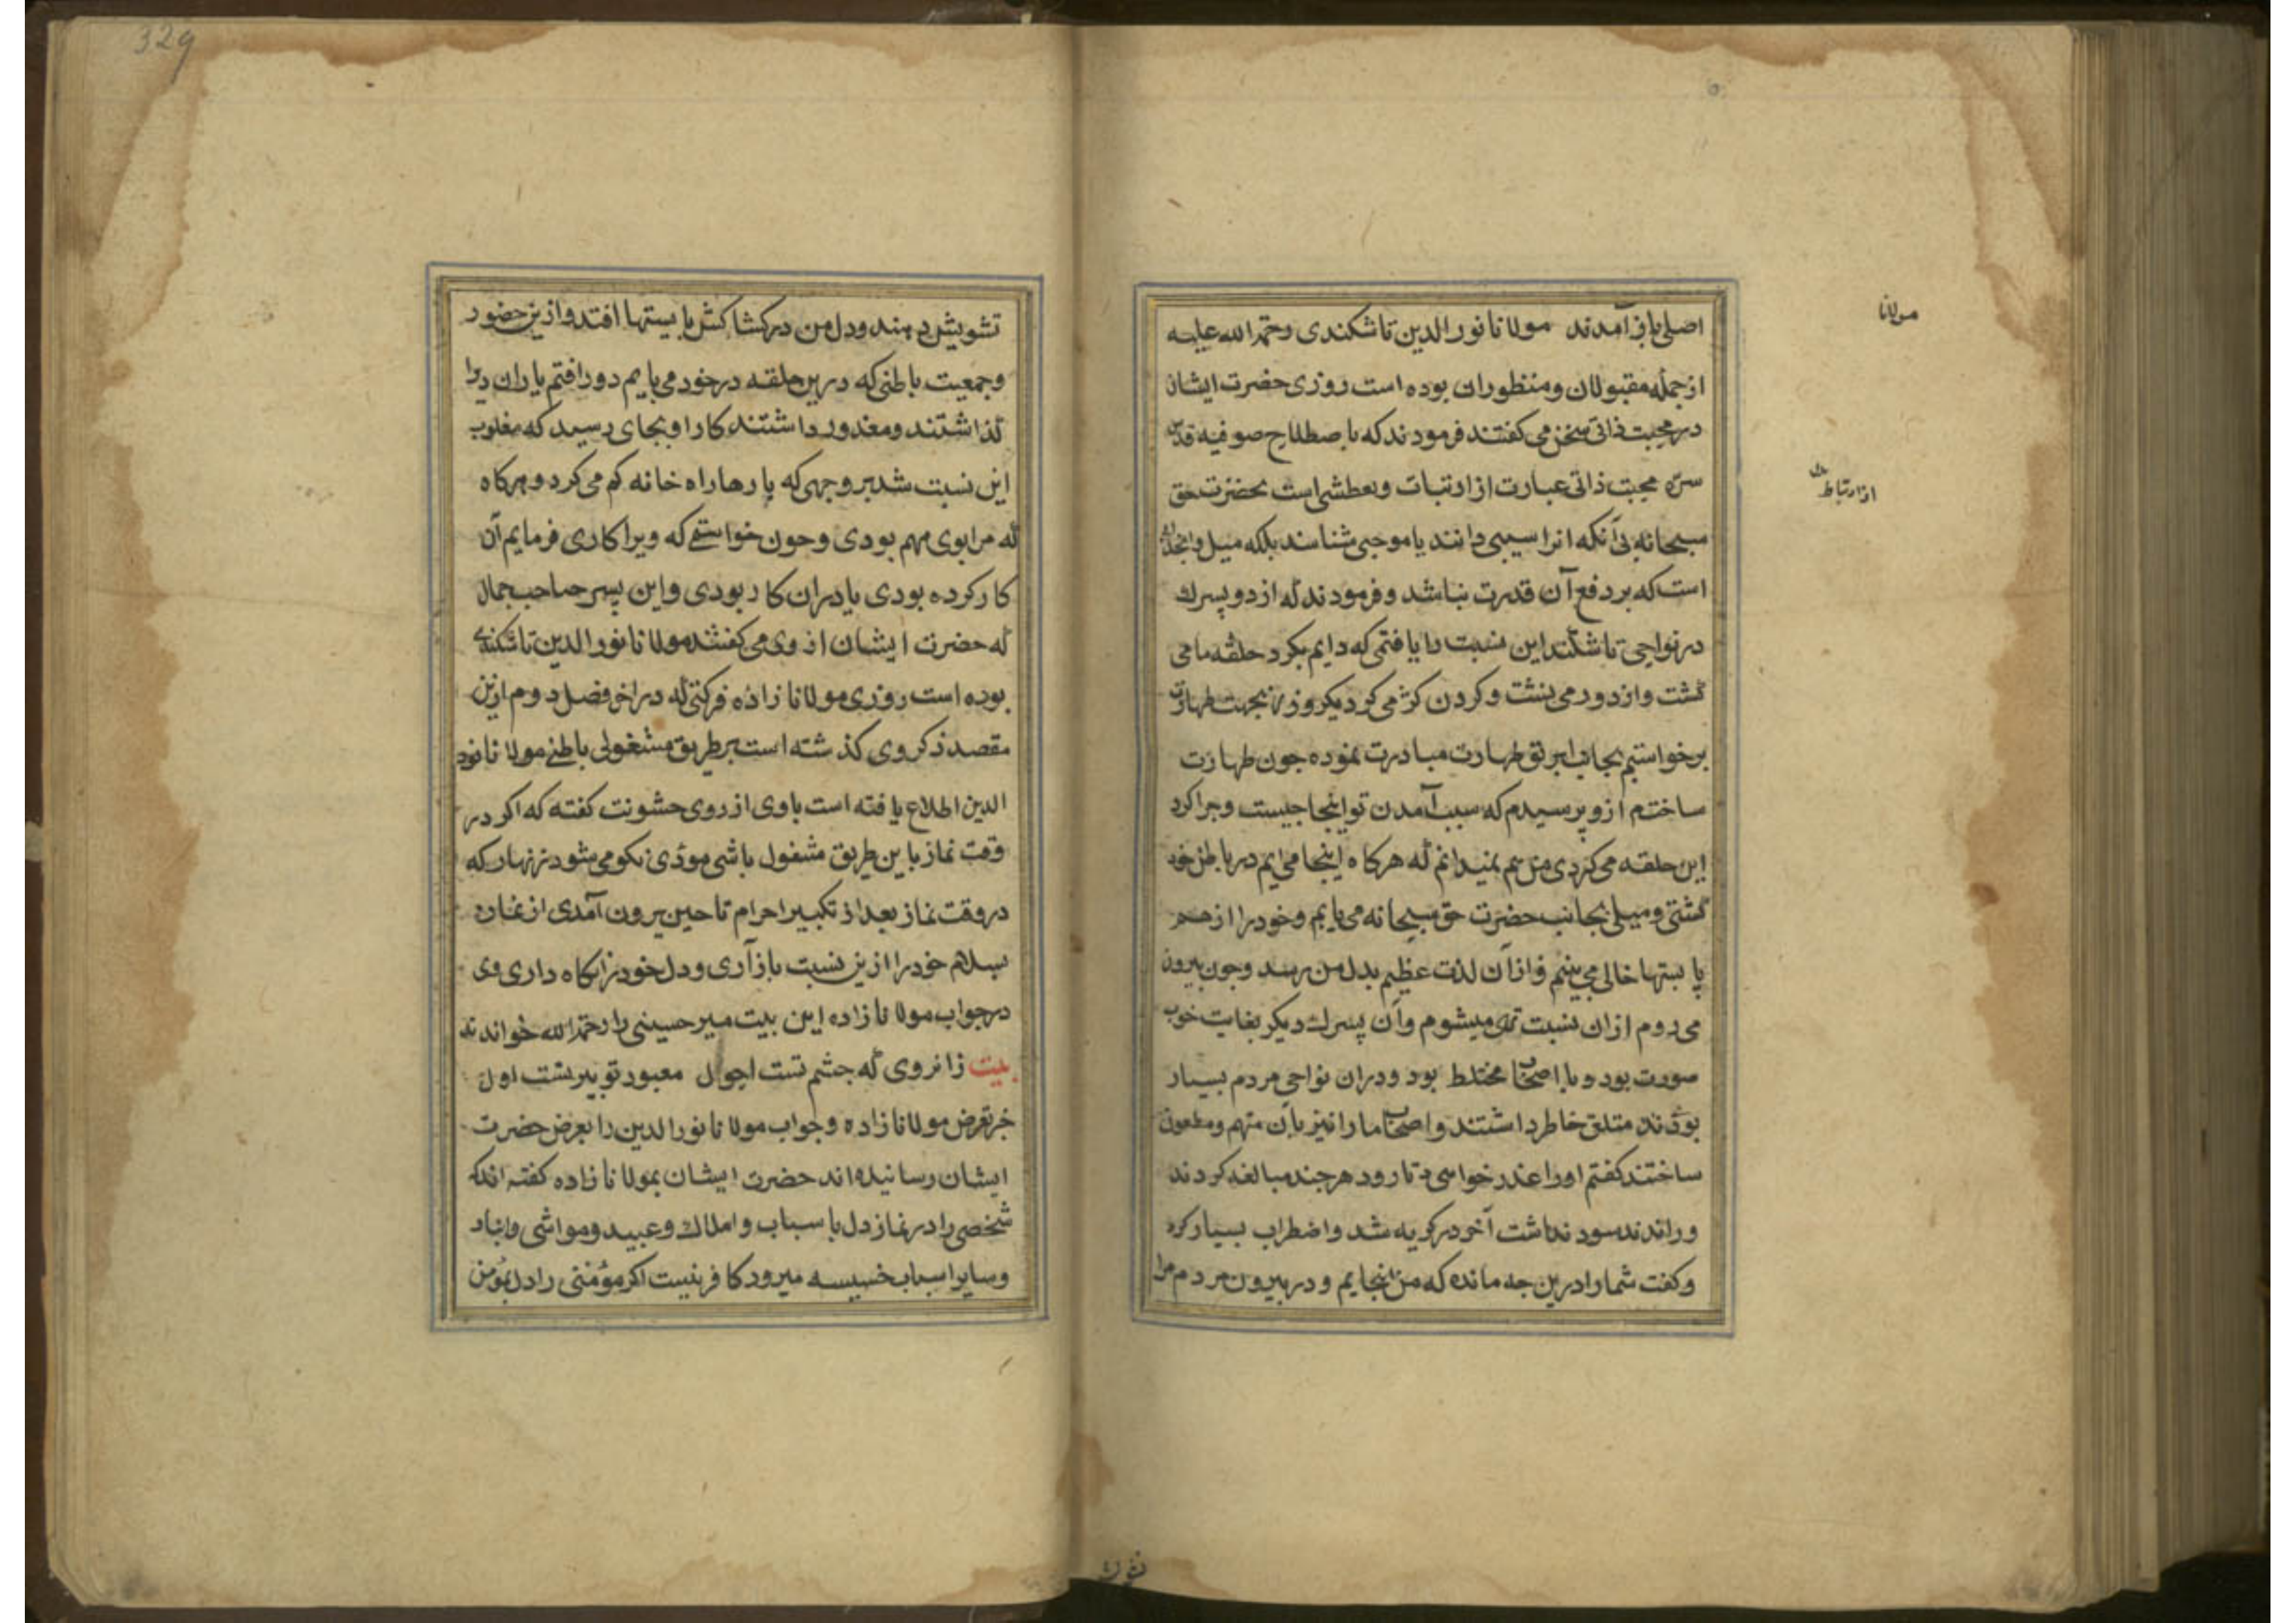 اصلی باز آمدند مولانا نور الدین تاشکندی رحمة الله علیه
از جمله مقبولان و منظوران بوده است روزی حضرت ایشان
در محبت ذاتی سخن می کفتند فرمودند که باصطلاح صوفیه قدس
سره محبت ذاتی عبارت از ارتبات و تعطشی است بحضرت حق
سبحانه بی آنکه انرا سببی دانند یا موجبی شناسند بلکه میل و انجذاب
است که بر دفع آن قدرت نباشد و فرمودند که از دو پسرك
در نواحی تاشکند این نسبت را یافتمی که دایم بکرد حلقه ما می
کشت و از دور می نشت و کردن کژ می کرد یکروز بجهت طهارت
برخواستم بجانب ابریق طهارت مبادرت نموده جون طهارت
ساختم ازو پرسیدم که سبب آمدن تو اینجا جیست و جرا کرد
این حلقه می کردی من هم نمیدانم که هرکاه اینجا می ایم در باطن خود
کشتی و میلی بجانب حضرت حق سبحانه می یابم و خود را از همه
بایستها خالی می بینم و از آن لذت عظیم بدل من رسد وجون بیرون
می روم ازان نسبت تهی میشوم وآن پسرك دیکر بغایت خوب
صورت بود و با اصحاب مختلط بود و دران نواحی مردم بسیار
بودند متلق خاطر داشتند و اصحاب ما را نیز بآن متهم و مطعون
ساختند کفتم اورا عذر خواهی د تا رود هرجند مبالغه کردند
و راندند سود نداشت آخر در کریه شد و اضطراب بسیار کرد
و کفت شما را درین جه مانده که من اینجایم و در بیرون مردم مرا
مولانا
از ارتباط
تشویش دهند و دل من در کشاکش بایستها افتد و ازین حضور
و جمعیت باطنی که درین حلقه در خود می یابم دور افتم یاران ویرا
کذاشتند و معذور داشتند کار او بجای رسید که مغلوب
این نسبت شد بر وجهی که بارها راه خانه کم می کرد و هرکاه
که مرا بوی مهم بودی و جون خواستمی که ویرا کاری فرمایم آن
کار کرده بودی یا دران کار بودی و این پسر صاحب جمال
که حضرت ایشان از وی می کفتند مولانا نور الدین تاشکندی
بوده است روزی مولانا زاده فرکتی که در اخر فصل دوم ازین
مقصد ذکر وی کذشته است بر طریق مشغولی باطنی مولانا نور
الدین اطلاع یافته است باوی از روی خشونت کفته که اکر در
وقت نماز باین طریق مشغول باشی مودی بکو می شود زنهار که
در وقت نماز بعد از تکبیر احرام تا حین بیرون آمدی از نماز
بسلام خود را ازین نسبت باز آری و دل خود را نکاه داری وی
در جواب مولانا زاده این بیت میر حسینی را رحمة الله خواندند
بیت زانروی که جشم تست احول معبود تو پیر تست اول
خبر تعرض مولانا زاده و جواب مولانا نور الدین را بعرض حضرت
ایشان رسانیده اند حضرت ایشان بمولانا زاده کفته اند که
شخصی را در نماز دل باسباب و املاك و عبید و مواشی و انبار
و سایر اسباب خسیسه میرود کافر نیست اکر مؤمنی را دل بمؤمن